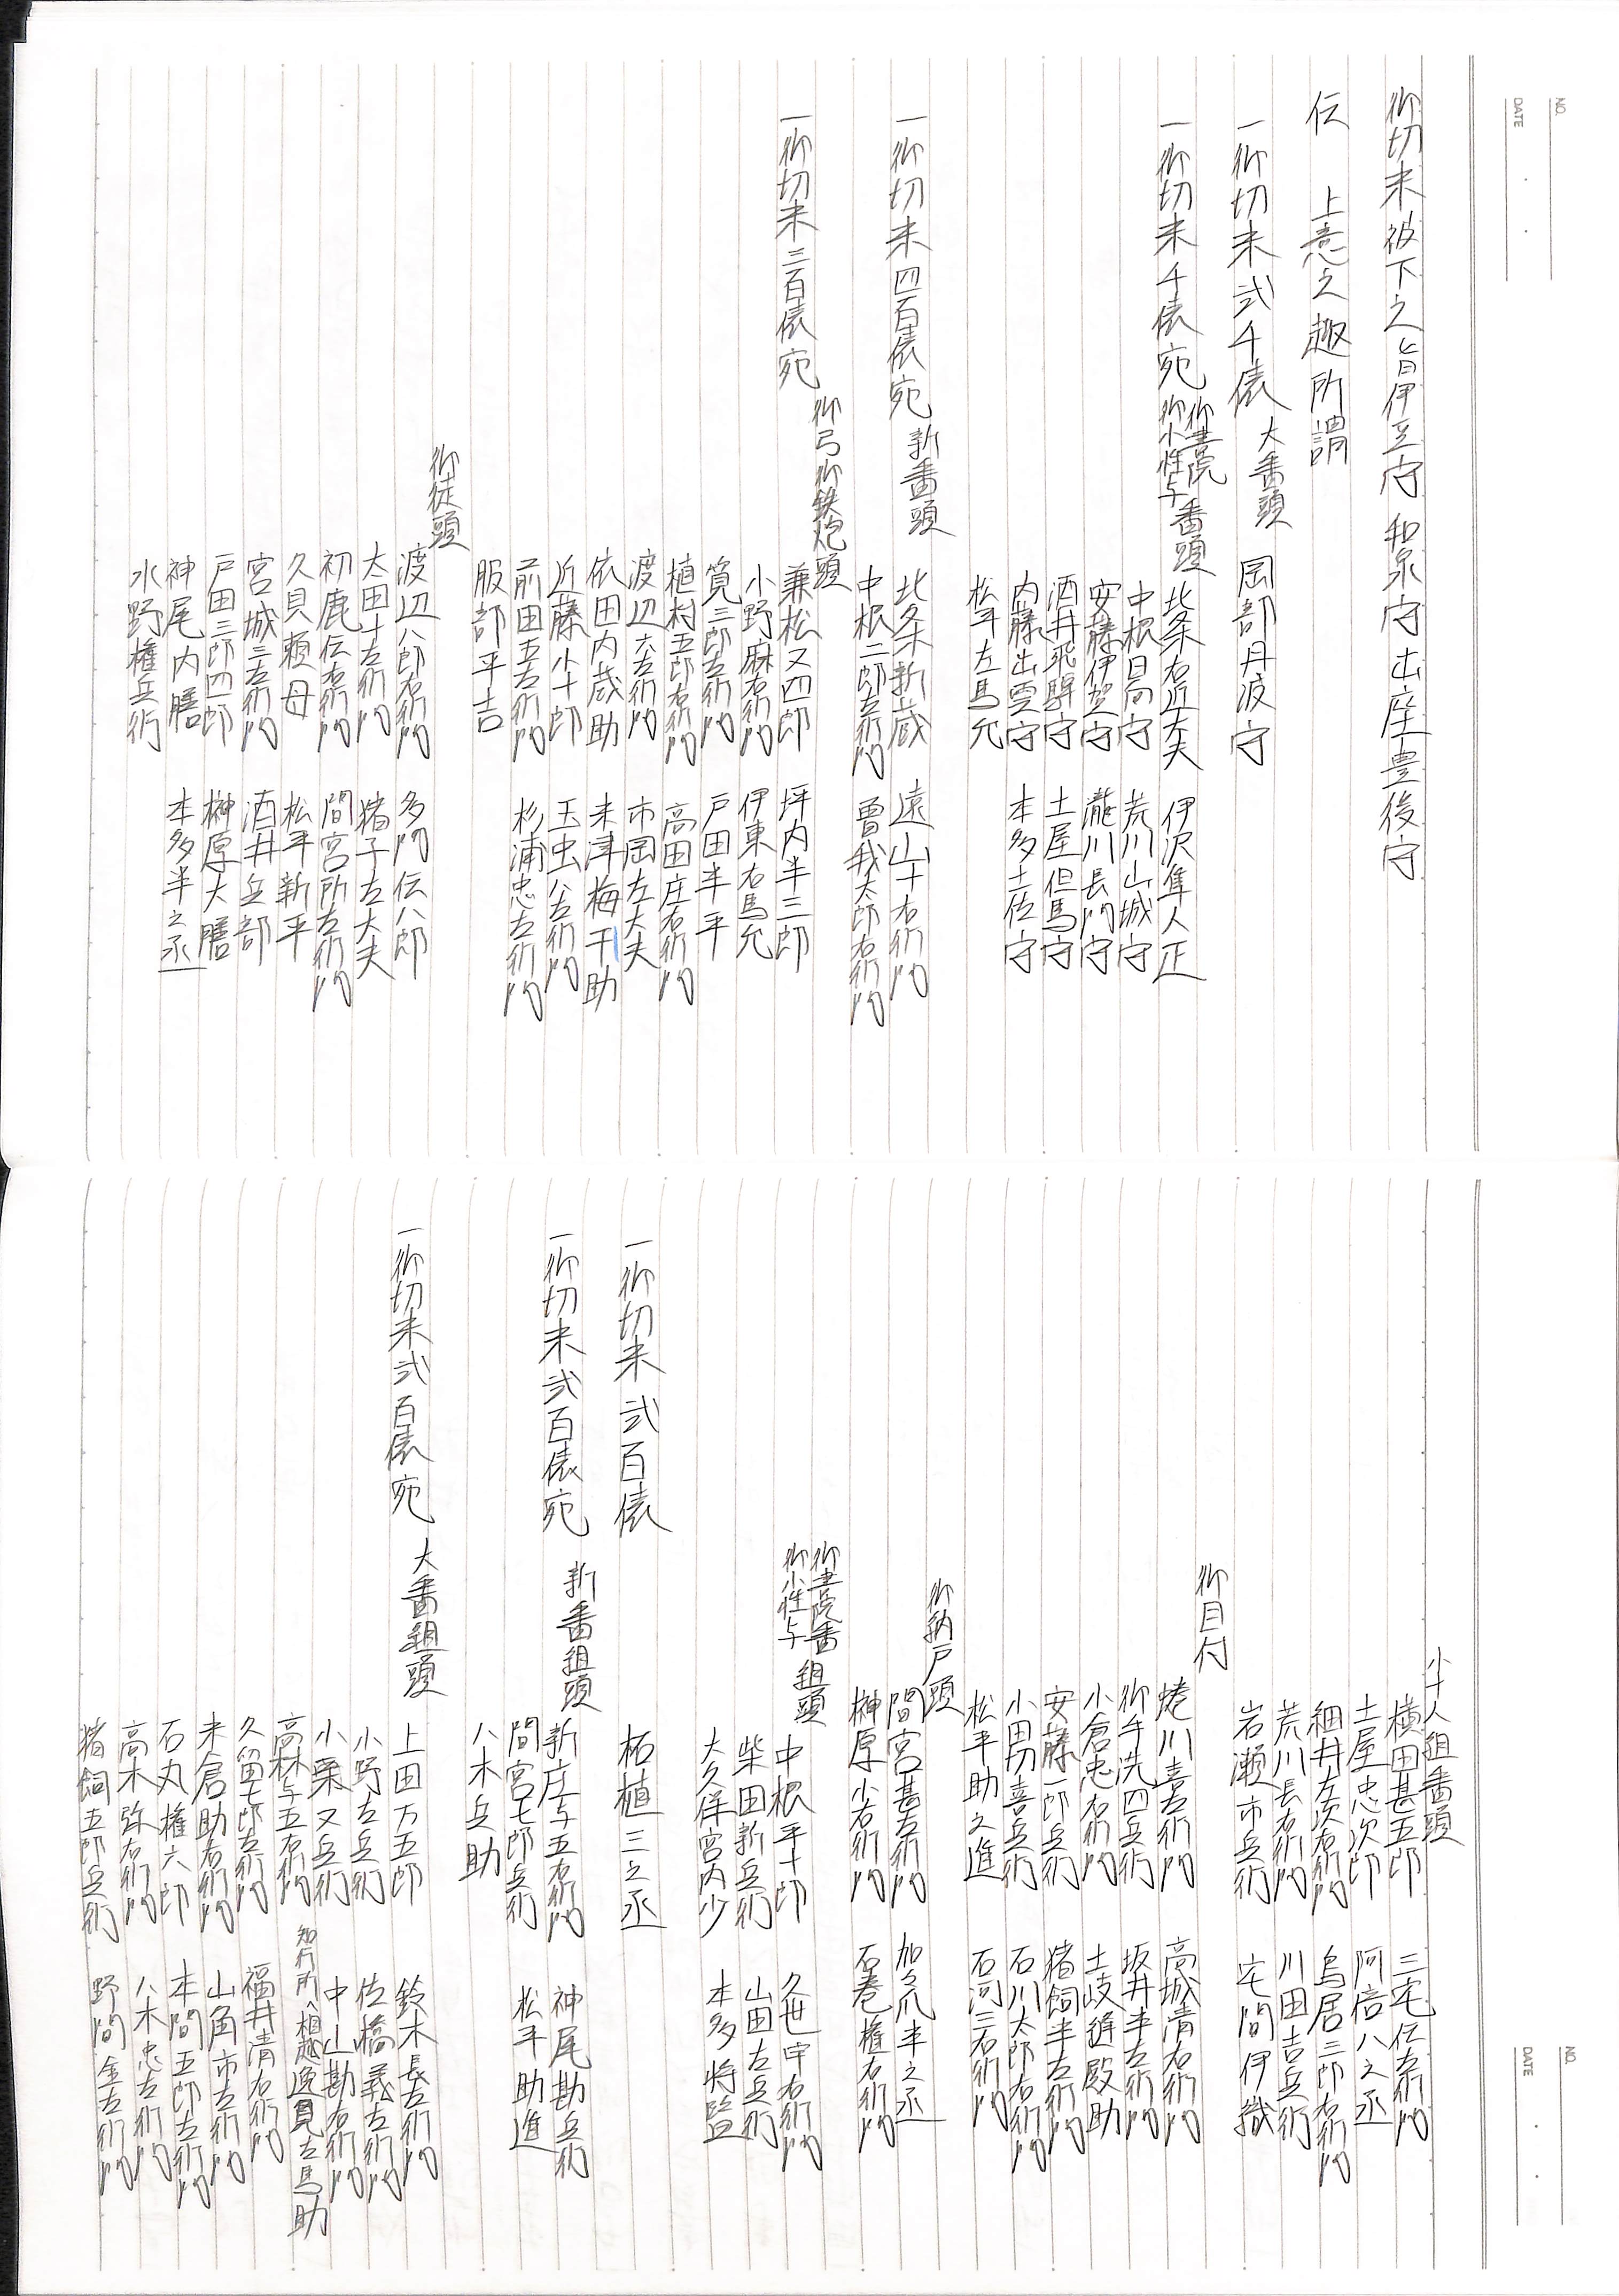 御切米被下之旨伊豆守和泉守出座豊後守
伝　上意之趣所謂
一御切米弐千俵　大番頭　岡部丹波守
一御切米千俵宛　御書院　御小性与　番頭　北条右近大夫　伊沢隼人正
中根日向守　荒川山城守
安藤伊賀守　瀧川長門守
酒井飛騨守　土屋但馬守
内藤出雲守　本多土佐守
松平左馬允
一御切米四百俵宛　新番頭　北条新蔵　遠山十右衛門
中根二郎左衛門　曽我太郎右衛門
御弓御鉄炮頭
一御切米三百俵宛　兼松又四郎　坪内半三郎
小野麻右衛門　伊東右馬允
筧三郎左衛門　戸田半平
植村五郎右衛門　高田庄右衛門
渡辺六左衛門　市岡左大夫
依田内蔵助　米津梅干助
近藤小十郎　玉虫八左衛門
前田五左衛門　杉浦忠左衛門
服部平吉
御徒頭
渡辺八郎右衛門　多門伝八郎
太田十左衛門　猪子左大夫
初鹿伝右衛門　間宮所左衛門
久貝頼母　松平新平
宮城三左衛門　酒井兵部
戸田三郎四郎　榊原大膳
神尾内膳　本多半之丞
水野権兵衛
小十人組番頭
横田甚五郎　三宅伝左衛門
土屋忠次郎　阿倍八之丞
細井左次右衛門　鳥居三郎右衛門
荒川長右衛門　川田吉兵衛
岩瀬市兵衛　宅間伊織
御目付
蜷川喜左衛門　高城清右衛門
御手洗四兵衛　坂井半左衛門
小倉忠右衛門　土岐縫殿助
安藤一郎兵衛　猪飼半左衛門
小田切喜兵衛　石川太郎右衛門
松平助之進　石河三右衛門
御納戸頭
間宮甚左衛門　加々爪半之丞
榊原少右衛門　石巻権右衛門
御書院番　御小性与　組頭
中根平十郎　久世平右衛門
柴田新兵衛　山田左兵衛
大久保宮内少　本多将監
一御切米弐百俵　柘植三之丞
一御切米弐百俵宛　新番組頭　新庄与五右衛門　神尾勘兵衛
間宮七郎兵衛　松平助進
八木兵助
一御切米弐百俵宛　大番組頭　上田万五郎　鈴木長左衛門
小野左兵衛　佐橋義左衛門
小栗又兵衛　中山勘右衛門
高林与五右衛門　知行所へ相越逸見左馬助
久留七郎左衛門　福井清右衛門
米倉助右衛門　山角市左衛門
石丸権六郎　本間五郎左衛門
高木弥右衛門　八木忠左衛門
猪飼五郎兵衛　野間金左衛門
NO.
DATE
NO.
DATE